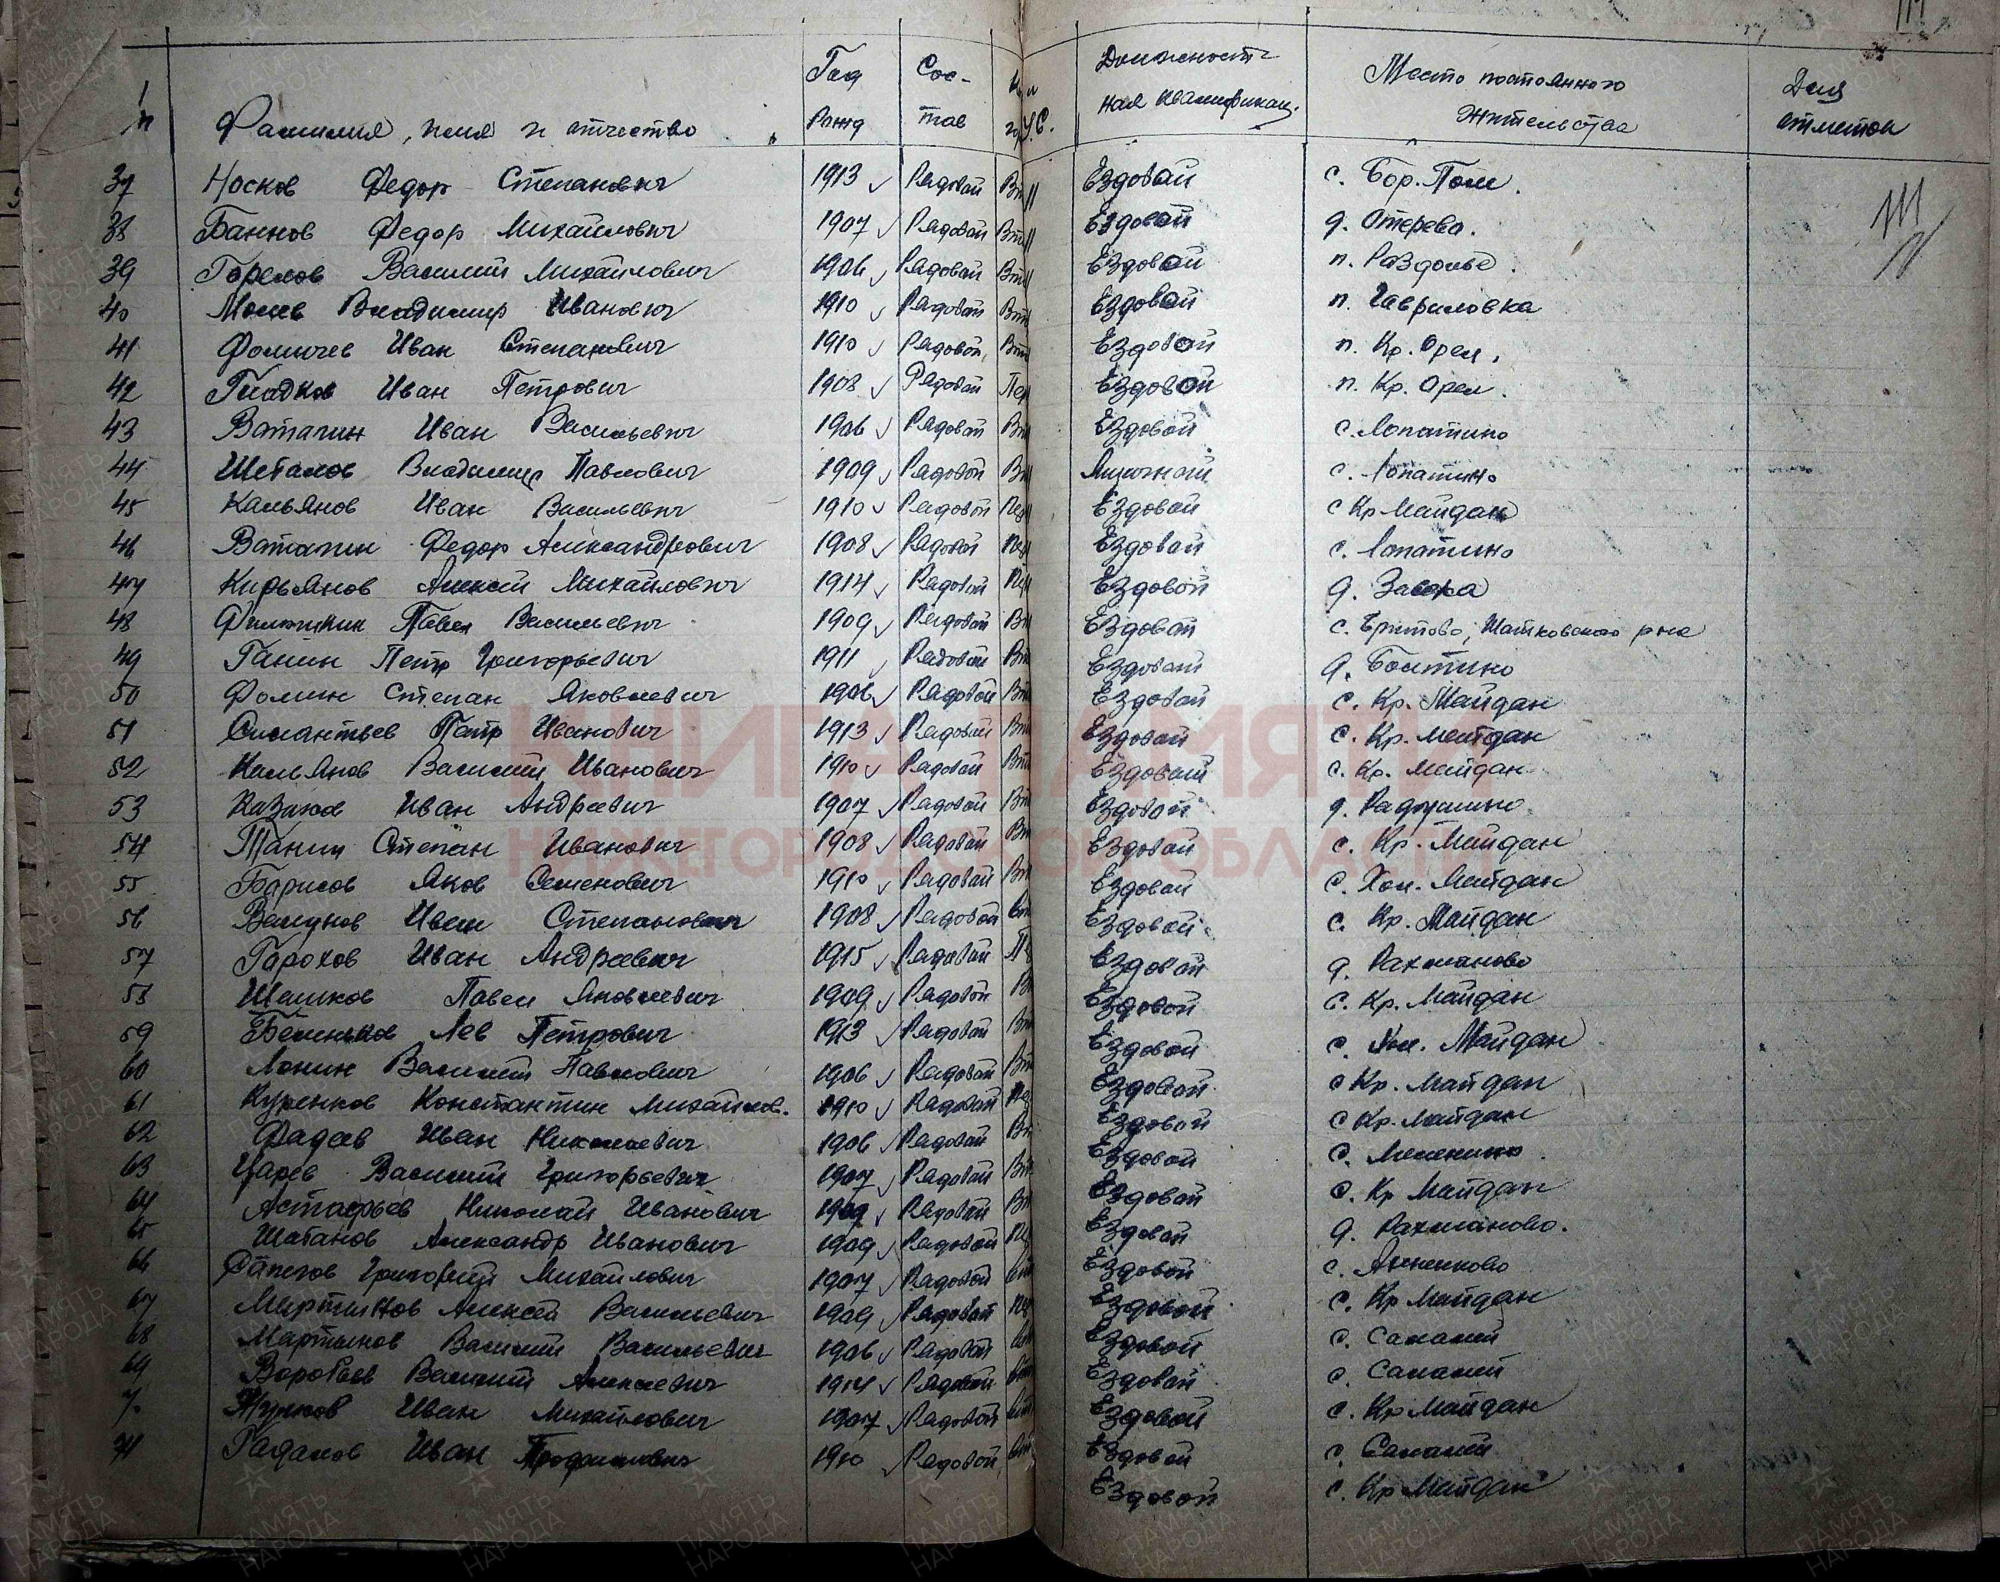 Фамилия, имя и отчество Год Рожд Сос-тав У.С. Должностная квалификац. Место постоянного жительства Для отметок
37 Носков Федор Степанович 1913 Рядовой Вт Ездовой с. Бор. Поле.
38 Баннов Федор Михайлович 1907 Рядовой Вт Ездовой д. Отерево.
39 Горелов Василий Михайлович 1906 Рядовой Вт Ездовой п. Раздолье.
40 Владимир Иванович 1910 Рядовой Вт Ездовой п. Гавриловка
41 Фомичев Иван Степанович 1910 Рядовой Вт Ездовой п. Кр. Орел.
42 Гладков Иван Петрович 1908 Рядовой Пер Ездовой п. Кр. Орел.
43 Ватагин Иван Васильевич 1906 Рядовой Вт Ездовой с. Лопатино
44 Шебалов Владимир Павлович 1909 Рядовой Вт с. Лопатино
45 Кальянов Иван Васильевич 1910 Рядовой Пер Ездовой с Кр Майдан
46 Ватагин Федор Александрович 1908 Рядовой Пер Ездовой с. Лопатино
47 Кирьянов Алексей Михайлович 1914 Рядовой Пер Ездовой д.
48 Павел Васильевич 1909 Рядовой Вт Ездовой с. Шатковского р на
49 Ганин Петр Григорьевич 1911 Рядовой Вт Ездовой д.
50 Фомин Степан Яковлевич 1906 Рядовой Вт Ездовой с. Кр. Майдан
51 Силантьев Петр Иванович 1913 Рядовой Вт Ездовой с. Кр. Майдан
52 Кальянов Василий Иванович 1910 Рядовой Вт Ездовой с. Кр. Майдан
53 Казаков Иван Андреевич 1907 Рядовой Вт Ездовой д.
54 Танин Степан Иванович 1908 Рядовой Вт Ездовой с. Кр. Майдан
55 Борисов Яков Семенович 1910 Рядовой Вт Ездовой с. Хол. Майдан
56 Иван Степанович 1908 Рядовой Ездовой с. Кр. Майдан
57 Горохов Иван Андреевич 1915 Рядовой Пе Ездовой д. Рахманово
58 Шешков Павел Яковлевич 1909 Рядовой В Ездовой с. Кр. Майдан
59 Беленьков Лев Петрович 1913 Рядовой Вт Ездовой с. Хол. Майдан
60 Лонин Василий Павлович 1906 Рядовой Вт Ездовой с Кр. Майдан
61 Куренков Константин Михайлов. 1910 Рядовой Пер Ездовой с Кр. Майдан
62 Фадеев Иван Николаевич 1906 Рядовой Вт Ездовой с.
63 Царев Василий Григорьевич 1907 Рядовой Вт Ездовой с. Кр Майдан
64 Астафьев Николай Иванович Рядовой Вт Ездовой д. Рахманово.
65 Шабанов Александр Иванович 1909 Рядовой Пер Ездовой с.
66 Сапегов Григорий Михайлович 1907 Рядовой Ездовой с. Кр Майдан
67 Мартынов Алексей Васильевич 1909 Рядовой Пер Ездовой с.
68 Мартынов Василий Васильевич 1906 Рядовой Ездовой с.
69 Воробьев Василий Алексеевич 1914 Рядовой Ездовой с. Кр Майдан
7. Жуков Иван Михайлович 1907 Рядовой Ездовой с.
71 Иван 1910 Рядовой Ездовой с. Кр Майдан
КНИГА ПАМЯТИ
НИЖЕГОРОДСКОЙ ОБЛАСТИ
ПАМЯТЬ НАРОДА